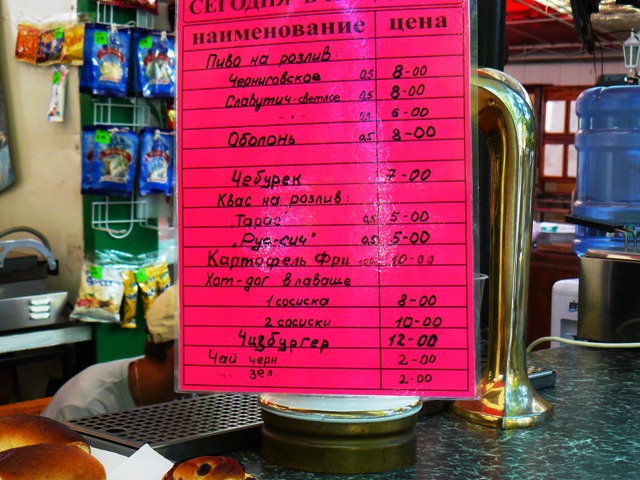 СЕГОДНЯ В
наименование цена
Пиво на розлив:
Черниговское 0,5 8-00
Славутич-светлое 0,5 8-00
-"- 0,5 6-00
Оболонь 0,5 8-00
Чебурек 7-00
Квас на розлив:
"Тарас" 0,5 5-00
"Рус-сич" 0,5 5-00
Картофель Фри 10-00
Хот-дог в лаваше
1 сосиска 8-00
2 сосиски 10-00
Чизбургер 12-00
Чай черн 2-00
-"- зел. 2-00